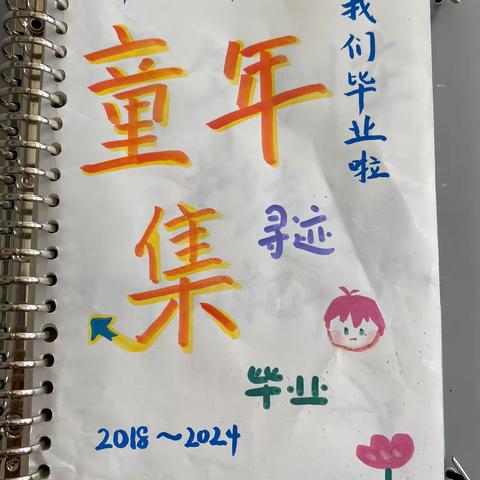 童年
集
我们毕业啦
寻迹
毕业
2018～2024